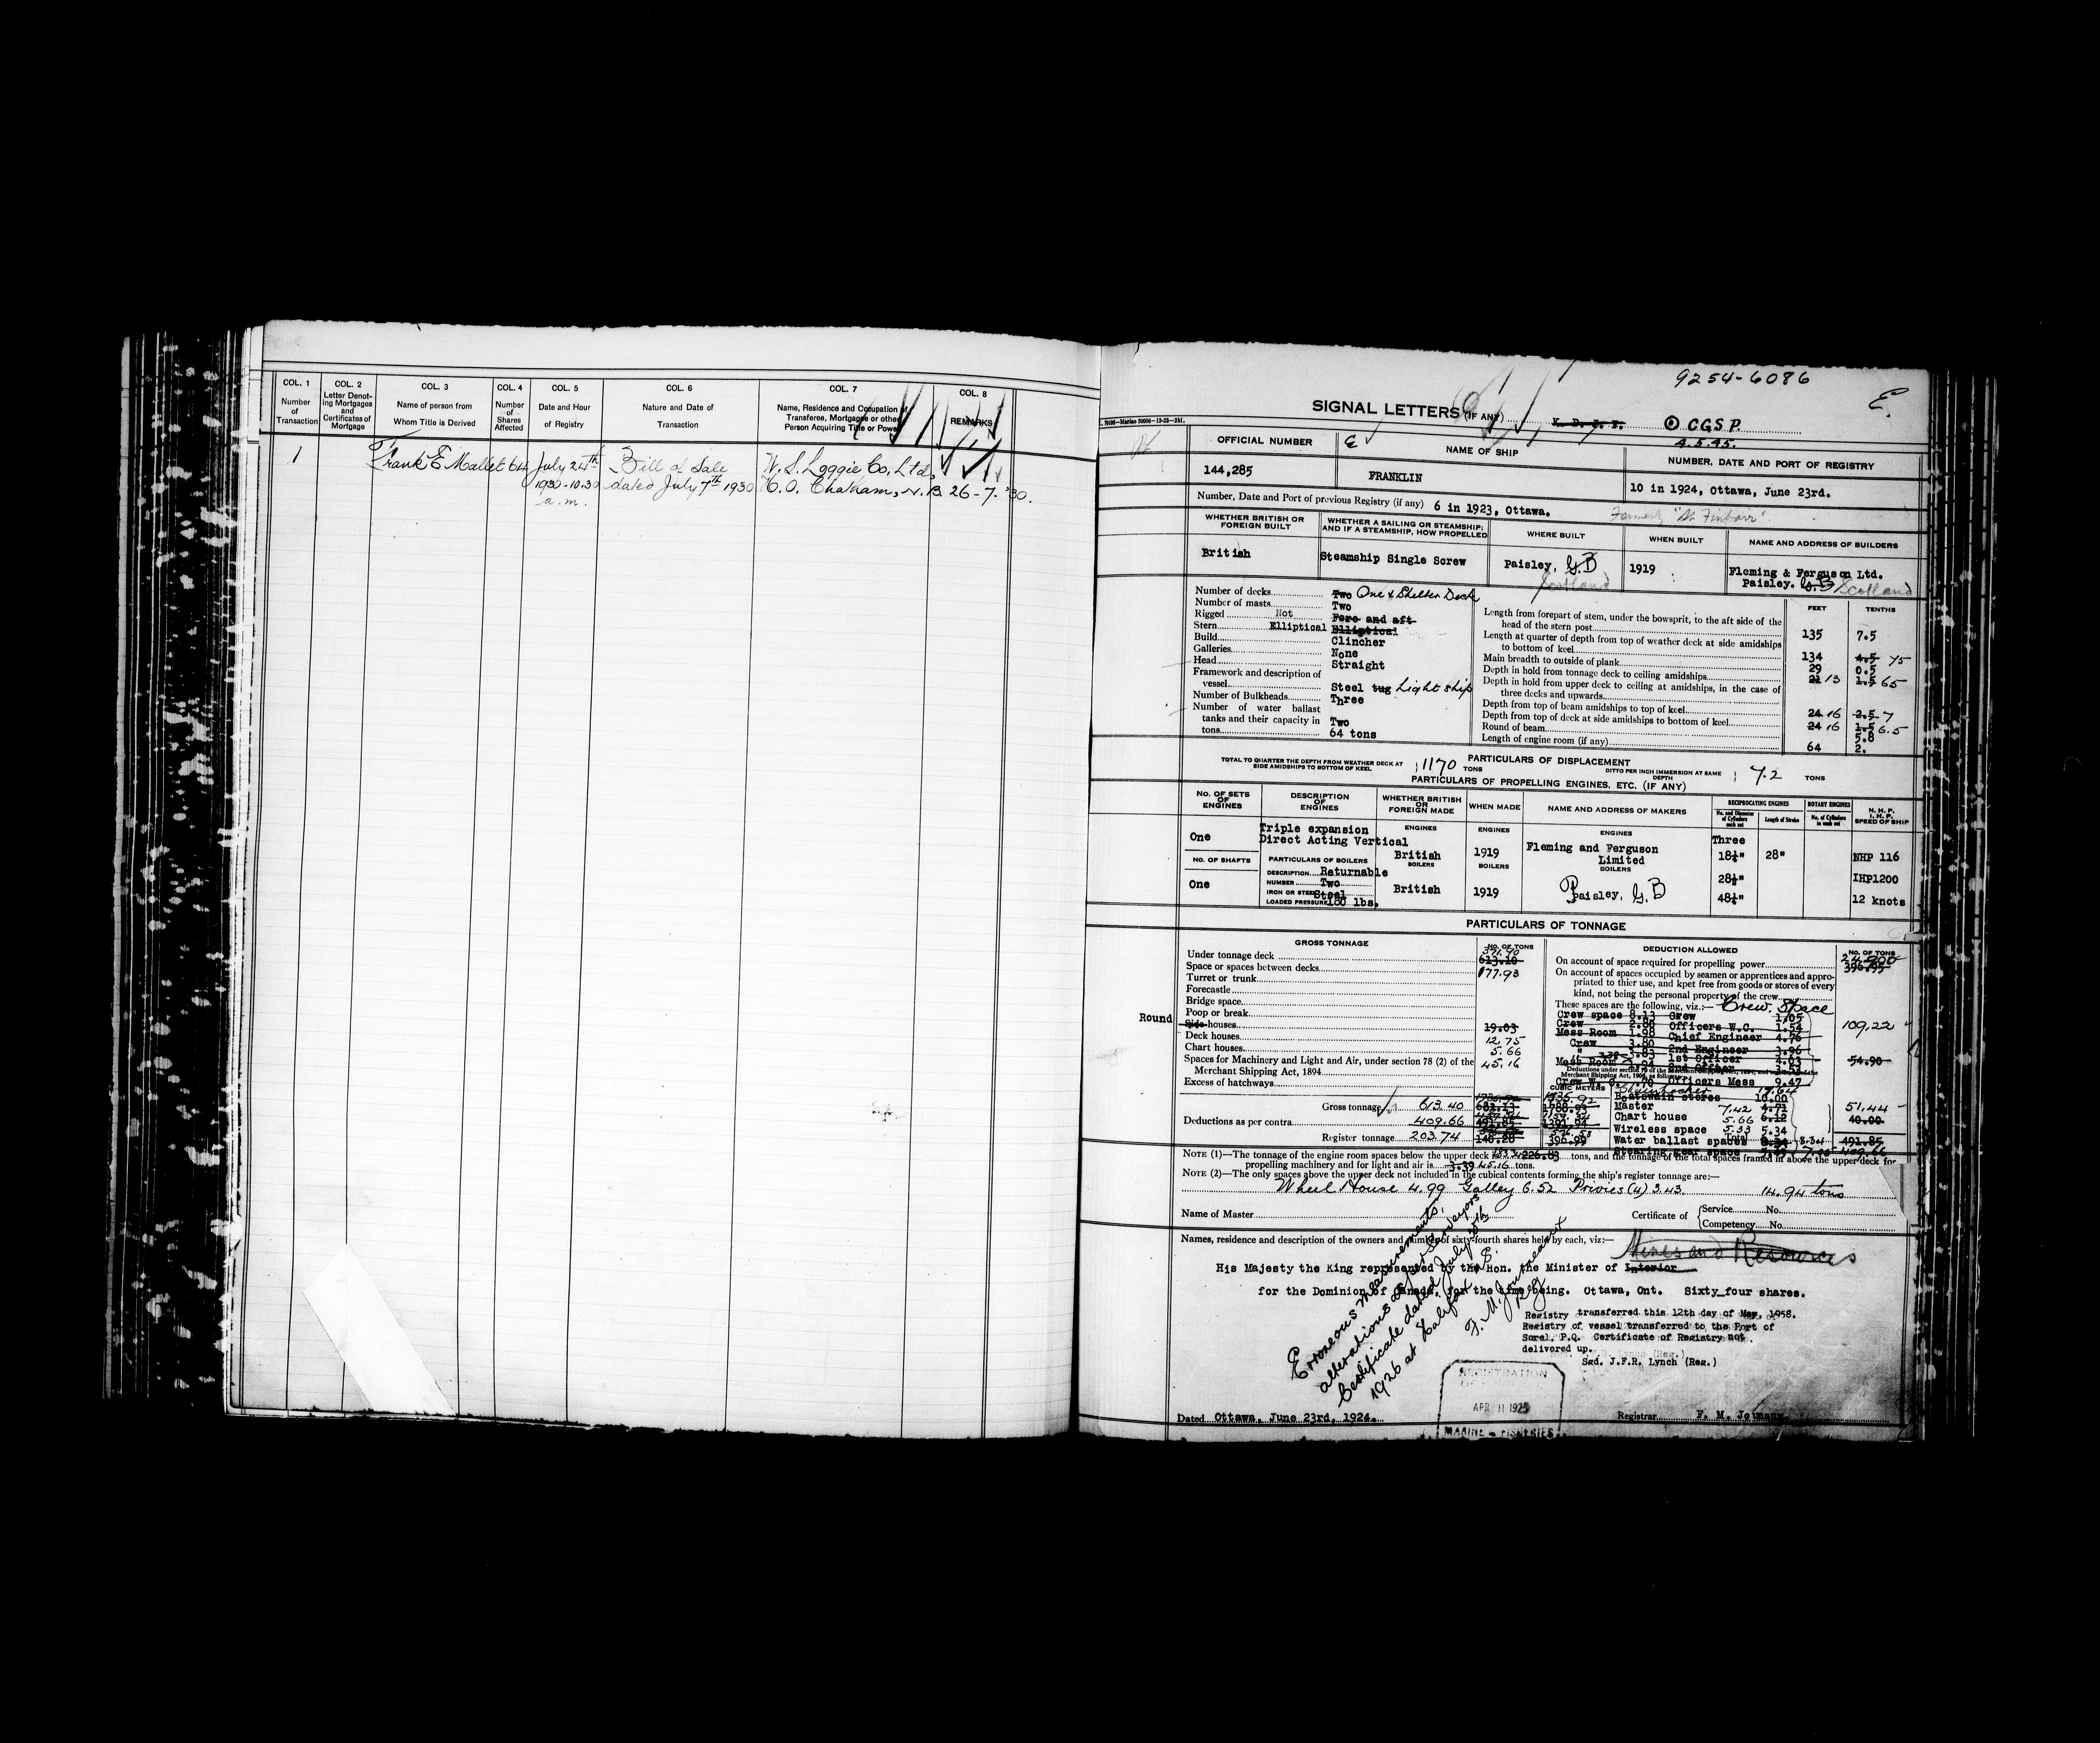 COL. 1
Number of Transaction
COL. 2
Letter Denoting Mortgages and Certificates of Mortgage
COL. 3
Name of person from Whom Title is Derived
COL. 4
Number of Shares Affected
COL. 5
Date and Hour of Registry
COL. 6
Nature and Date of Transaction
COL. 7
Name, Residence and Occupation of Transferee, Mortgagee or other Person Acquiring Title or Power
COL. 8
REMARKS
1 Frank E Mallet 64 July 24th Bill of Sale W. S. Loggie Co. Ltd.
1930-10.30 dated July 7th 1930 H.O. Chatham, N.B. 26-7-'30.
a.m.
9254-6086
E.
SIGNAL LETTERS (IF ANY) CGSP.
4.5.45.
OFFICIAL NUMBER
144,285
NAME OF SHIP
FRANKLIN
NUMBER, DATE AND PORT OF REGISTRY
10 in 1924, Ottawa, June 23rd.
Number, Date and Port of previous Registry (if any) 6 in 1923, Ottawa.
Formerly "St Finbarr"
WHETHER BRITISH OR FOREIGN BUILT
British
WHETHER A SAILING OR STEAMSHIP; AND IF A STEAMSHIP, HOW PROPELLED
Steamship Single Screw
WHERE BUILT
Paisley, G.B
Scotland
WHEN BUILT
1919
NAME AND ADDRESS OF BUILDERS
Fleming & Ferguson Ltd.
Paisley. G.B Scotland
Number of decks Two One & Shelter Deck
Number of masts Two
Rigged Not Fore and aft
Stern Elliptical Elliptical
Build Clincher
Galleries None
Head Straight
Framework and description of vessel Steel tug Light ship
Number of Bulkheads Three
Number of water ballast tanks and their capacity in tons Two
64 tons
FEET TENTHS
Length from forepart of stem, under the bowsprit, to the aft side of the head of the stern post 135 7.5
Length at quarter of depth from top of weather deck at side amidships to bottom of keel 134 4.5 75
Main breadth to outside of plank 29 0.5
Depth in hold from tonnage deck to ceiling amidships 21 13 1.5 65
Depth in hold from upper deck to ceiling at amidships, in the case of three decks and upwards
Depth from top of beam amidships to top of keel 24 16 2.5 7
Depth from top of deck at side amidships to bottom of keel 24 16 1.5 6.5
Round of beam 5.8
Length of engine room (if any) 64 2.
PARTICULARS OF DISPLACEMENT
TOTAL TO QUARTER THE DEPTH FROM WEATHER DECK AT SIDE AMIDSHIPS TO BOTTOM OF KEEL 1170 TONS
DITTO PER INCH IMMERSION AT SAME DEPTH 7.2 TONS
PARTICULARS OF PROPELLING ENGINES, ETC. (IF ANY)
NO. OF SETS OF ENGINES
One
DESCRIPTION OF ENGINES
Triple expansion
Direct Acting Vertical
WHETHER BRITISH OR FOREIGN MADE
ENGINES
British
WHEN MADE
ENGINES
1919
NAME AND ADDRESS OF MAKERS
ENGINES
Fleming and Ferguson
Limited
RECIPROCATING ENGINES
No. and Diameter of Cylinders in each set
Length of Stroke
ROTARY ENGINES
No. of Cylinders in each set
N. H. P.
I. H. P.
SPEED OF SHIP
Three
18¼" 28" NHP 116
28¼" IHP1200
48¼" 12 knots
NO. OF SHAFTS
One
PARTICULARS OF BOILERS
DESCRIPTION Returnable
NUMBER Two
IRON OR STEEL Steel
LOADED PRESSURE 180 lbs.
BOILERS
British
BOILERS
1919
BOILERS
Paisley, G.B
PARTICULARS OF TONNAGE
GROSS TONNAGE NO. OF TONS
Under tonnage deck 371.90
613.10
Space or spaces between decks 177.93
Turret or trunk
Forecastle
Bridge space
Poop or break
Round Side houses 19.03
Deck houses 12.75
Chart houses 5.66
Spaces for Machinery and Light and Air, under section 78 (2) of the Merchant Shipping Act, 1894 45.16
Excess of hatchways
Gross tonnage 613.40
Deductions as per contra 409.66
Register tonnage 203.74
CUBIC METERS
DEDUCTION ALLOWED NO. OF TONS
On account of space required for propelling power
On account of spaces occupied by seamen or apprentices and appropriated to thier use, and kpet free from goods or stores of every kind, not being the personal property of the crew
These spaces are the following, viz:— Crew Space
Crew space 8.13 Crew 1.05
Crew 2.86 Officers W.C. 1.54 109.22
Mess Room 1.98 Chief Engineer 4.76
Crew 3.80 2nd Engineer 3.96
1st Officer 4.03 54.90
Officers Mess 9.47
Boatswain stores 10.00
Master 7.42 4.71 51.44
Chart house 5.66 6.12 40.00
Wireless space 5.33 5.34
Water ballast spaces 491.85
Steering gear space 409.66
NOTE (1)—The tonnage of the engine room spaces below the upper deck is 226.83 tons, and the tonnage of the total spaces framed in above the upper deck for propelling machinery and for light and air is 3.39 45.16 tons.
NOTE (2)—The only spaces above the upper deck not included in the cubical contents forming the ship's register tonnage are:—
Wheel House 4.99 Galley 6.52 Privies (4) 3.43. 14.94 tons
Name of Master
Certificate of Service No.
Competency No.
Names, residence and description of the owners and number of sixty-fourth shares held by each, viz:—
Mines and Resources
His Majesty the King represented by the Hon. the Minister of Interior
for the Dominion of Canada, for the time being. Ottawa, Ont. Sixty four shares.
Registry transferred this 12th day of May, 1958.
Registry of vessel transferred to the Port of
Sorel, P.Q. Certificate of Registry not
delivered up.
Sgd. J.F.R. Lynch (Reg.)
Erroneous measurements,
alterations as per Surveyors
Certificate dated July 20th
1926 at Halifax N.S.
REGISTRATION
APR 11 1925
MARINE & FISHERIES
Dated Ottawa, June 23rd, 1924.
Registrar F. M.